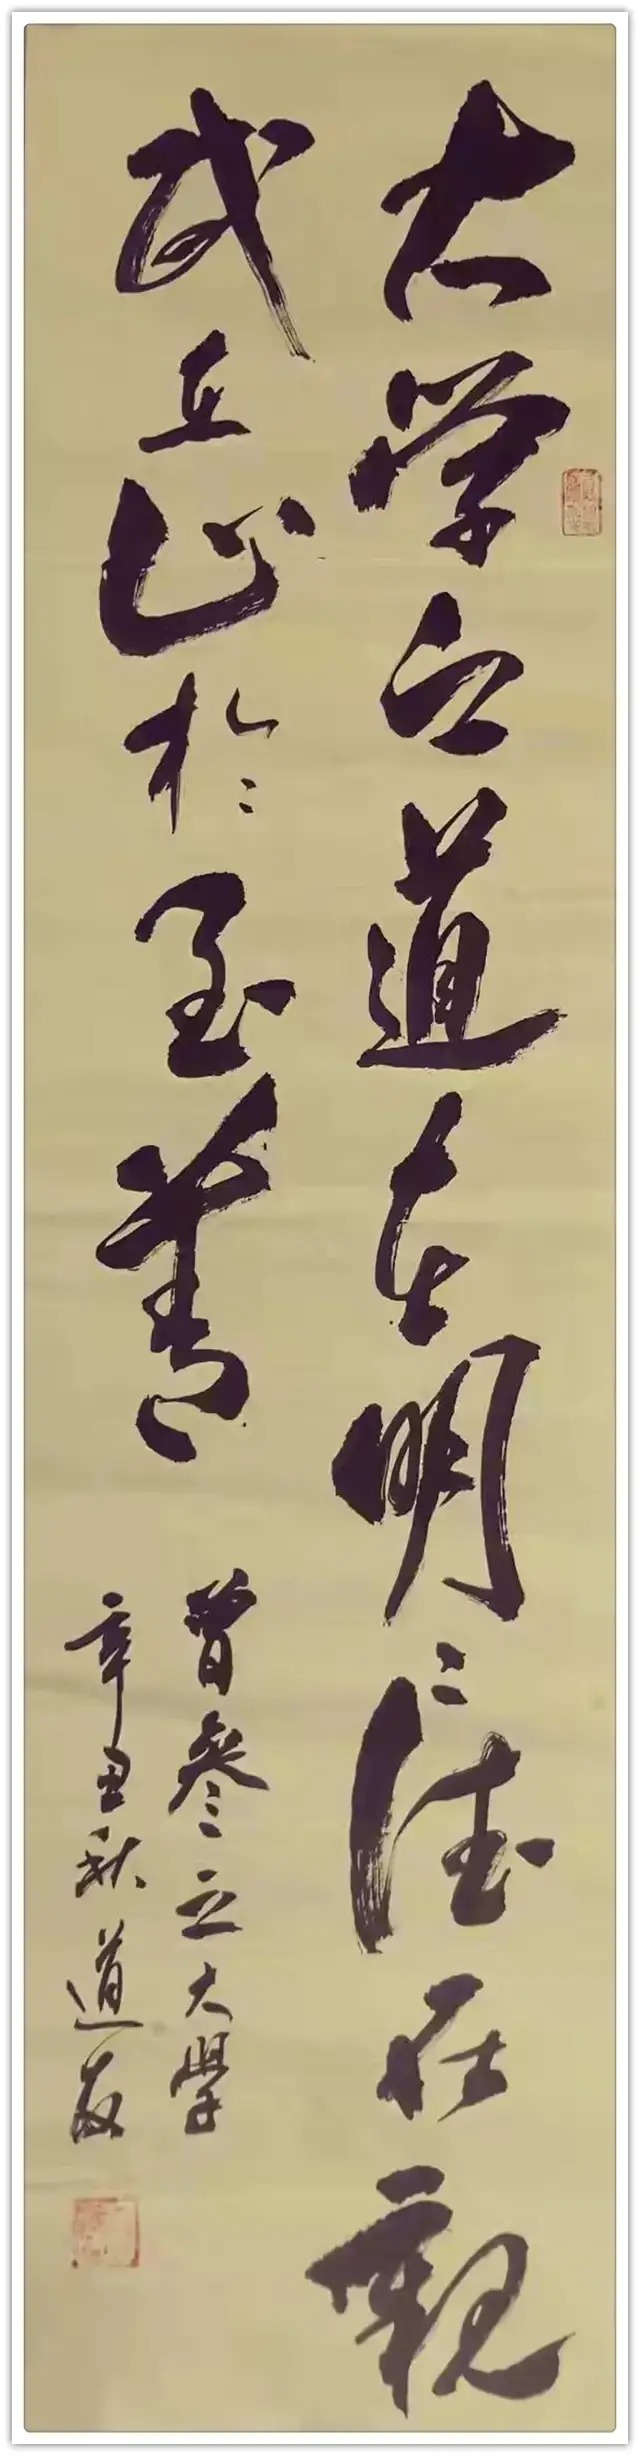 大学之道在明〻德在親
民在止於至善
曾参之大學
辛丑秋道友